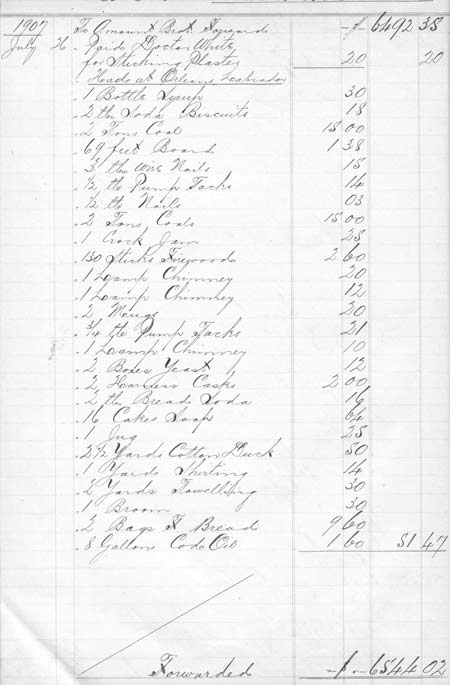 1907 To Amount Brot. Forward -f- 6492 35
July 26 . Paid Doctor White
for Sticking Plaster 20 20
Made at Orleans Labrador
. 1 Bottle Syrup 30
. 2 lbs Soda Biscuits 18
. 2 Tons Coal 15 00
. 69 feet Board 1 38
. 3 lbs Wire Nails 15
. ½ lb Pump Tacks 14
. ½ lb Nails 03
. 2 Tons Coals 15 00
. 1 Crock Jam 25
. 130 Sticks Firewood 2 60
. 1 Lamp Chimney 20
. 1 Lamp Chimney 12
. 2 Mugs 20
. ¾ lb Pump Tacks 21
. 1 Lamp Chimney 10
. 2 Boxes Yeast 12
. 2 Harness Casks 2 00
. 2 lbs Bread Soda 16
. 16 Cakes Soap 64
. 1 Jug 25
. 2½ Yards Cotton Duck 50
. 1 Yard Shirting 14
. 2 Yards Towelling 30
. 1 Broom 30
. 2 Bags F Bread 9 60
. 8 Gallons Cod Oil 1 60 51 47
Forwarded -f- 6544 02